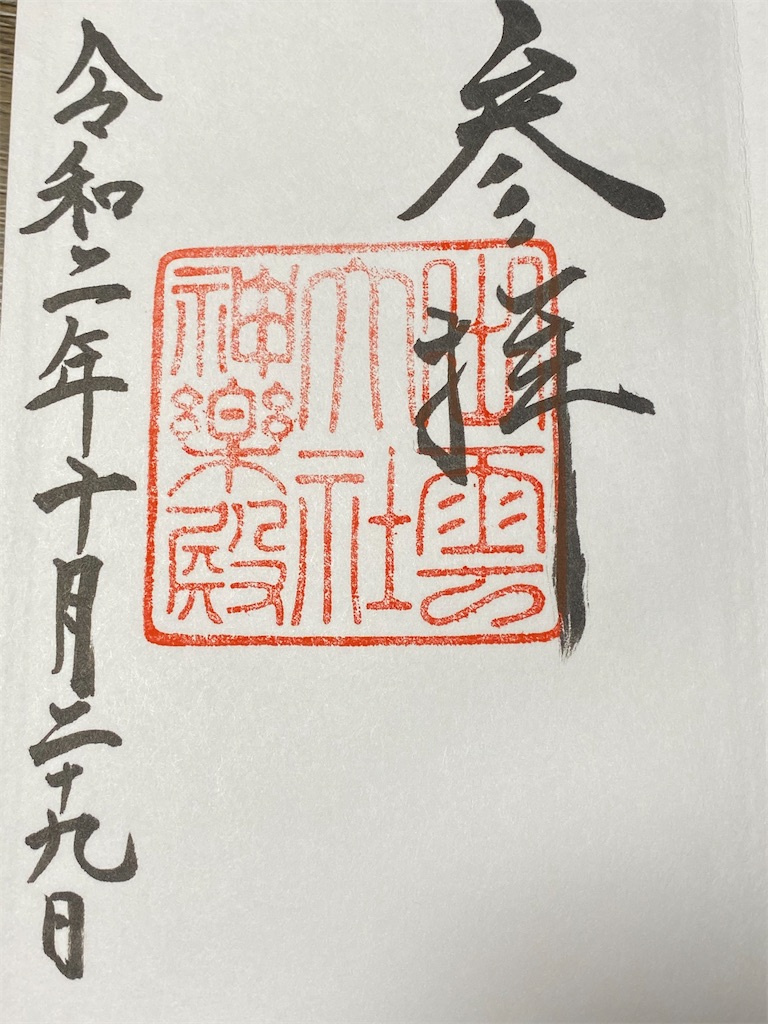 参拝
出雲
大社
神楽殿
令和二年十月二十九日